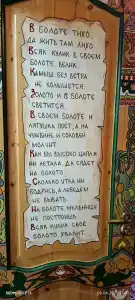 В БОЛОТЕ ТИХО,
ДА ЖИТЬ ТАМ ЛИХО
ВСЯК КУЛИК В СВОЁМ
БОЛОТЕ ВЕЛИК.
КАМЫШ БЕЗ ВЕТРА
НЕ КОЛЫШЕТСЯ.
ЗОЛОТО И В БОЛОТЕ
СВЕТИТСЯ.
В СВОЁМ БОЛОТЕ И
ЛЯГУШКА ПОЁТ, А НА
ЧУЖБИНЕ И СОЛОВЕЙ
МОЛЧИТ
КАК БЫ ВЫСОКО ЦАПЛЯ
НИ ЛЕТАЛА, А СЯДЕТ
НА БОЛОТО
СКОЛЬКО УТКА НИ
БОДРИСЬ, А ЛЕБЕДЕМ
НЕ БЫВАТЬ.
НА БОЛОТЕ МЕЛЬНИЦУ
НЕ ПОСТРОИШЬ.
ВСЯК КУЛИК СВОЁ
БОЛОТО ХВАЛИТ.